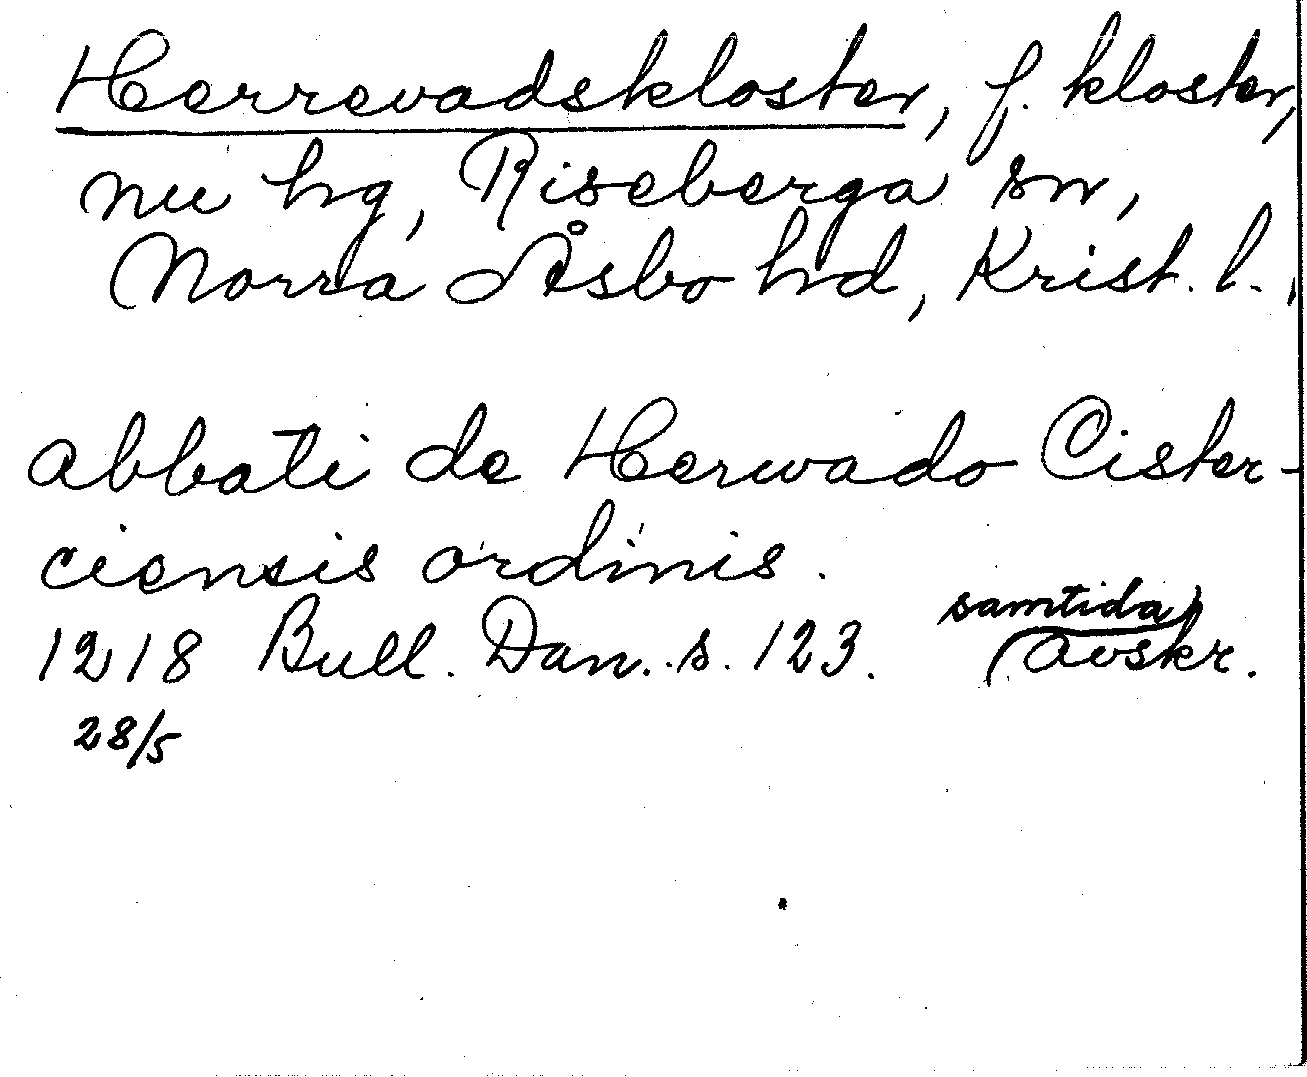 Herrevadskloster, f. kloster,
nu hg, Riseberga sn,
Norra Åsbo hd, Krist. l.,
abbati de Herwado Cister-
ciensis ordinis.
1218 Bull. Dan. s. 123. samtida avskr.
28/5